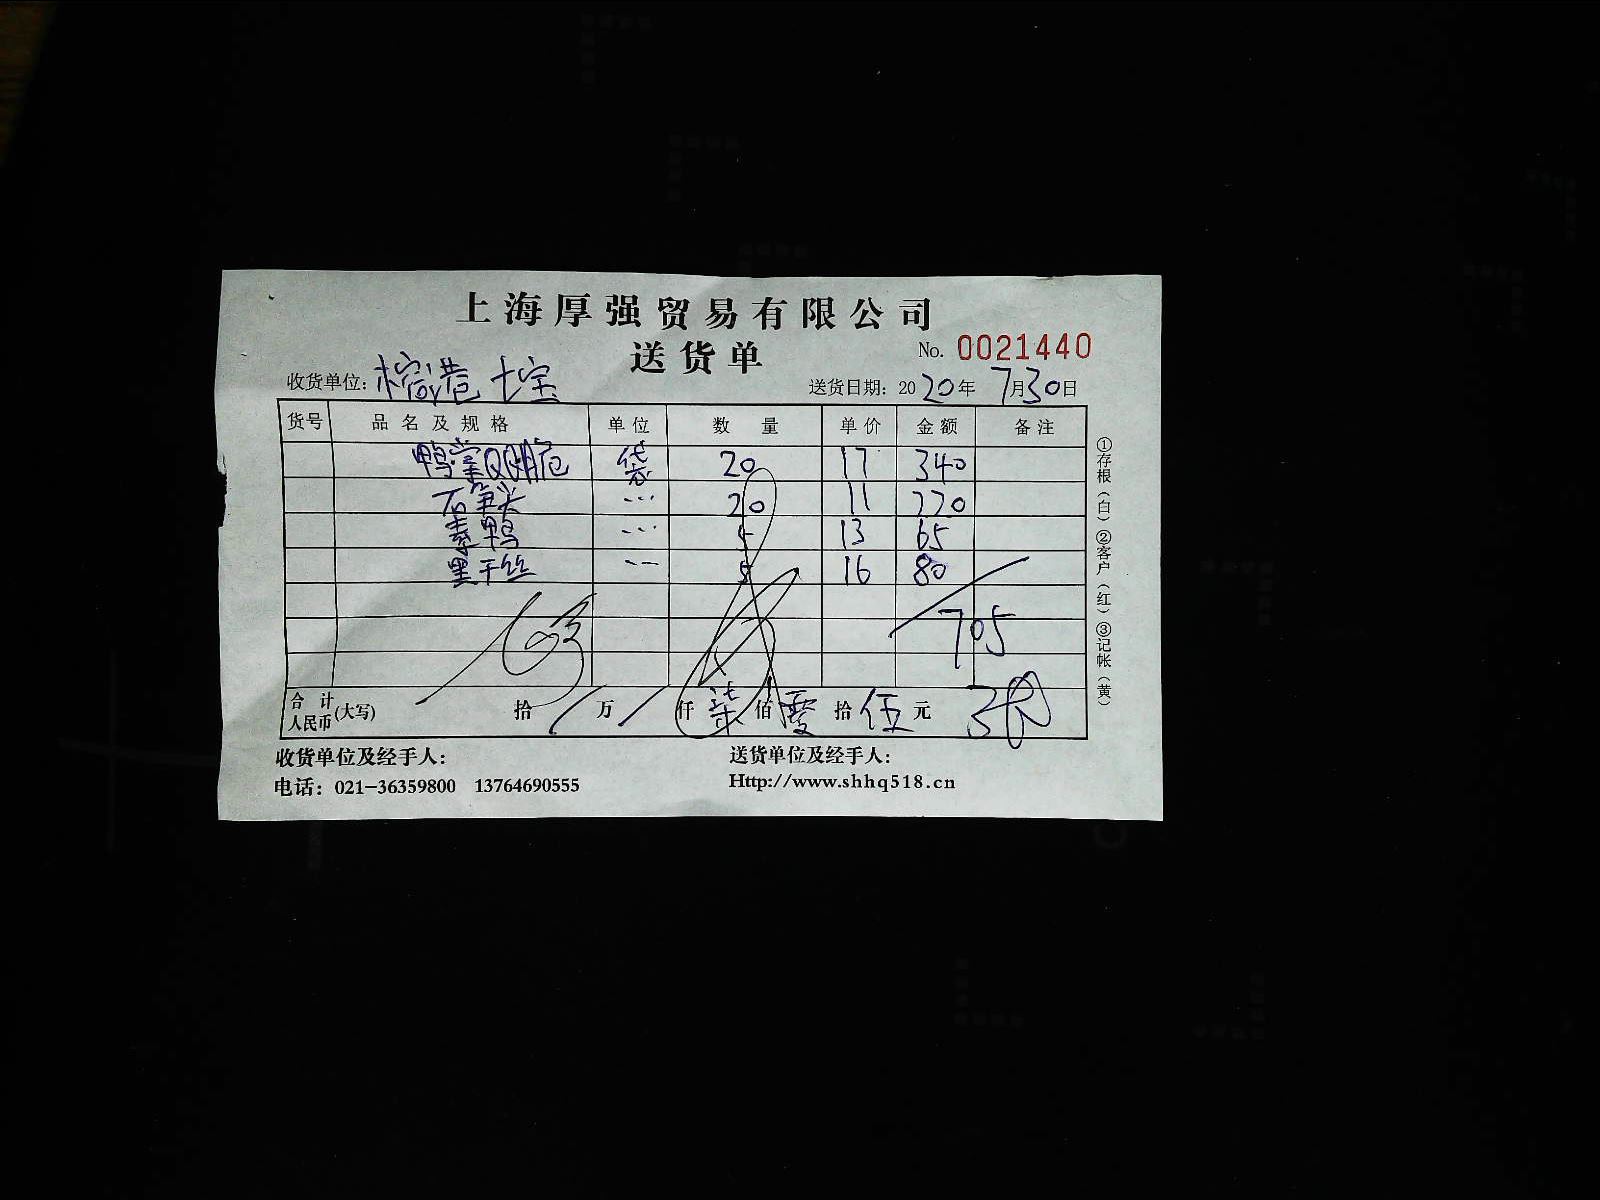 上海厚强贸易有限公司
送货单 No. 0021440
收货单位: 榕港 七宝 送货日期: 2020年 7月30日
货号 品名及规格 单位 数量 单价 金额 备注
鸭掌QQ脆 袋 20 17 340
石笋尖 ... 20 11 220
素鸭 ... 5 13 65
黑干丝 ... 5 16 80
705
合计人民币(大写) 拾 / 万 / 仟 柒 佰 零 拾 伍 元
收货单位及经手人: 送货单位及经手人:
电话: 021-36359800 13764690555 Http://www.shhq518.cn
①存根(白)②客户(红)③记帐(黄)